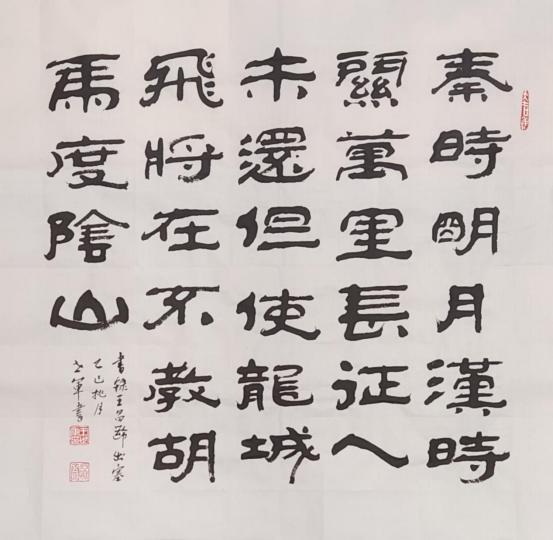 秦時明月漢時
關萬里長征人
未還但使龍城
飛將在不教胡
馬度陰山
書錄王昌齡出塞
乙巳桃月
軍書